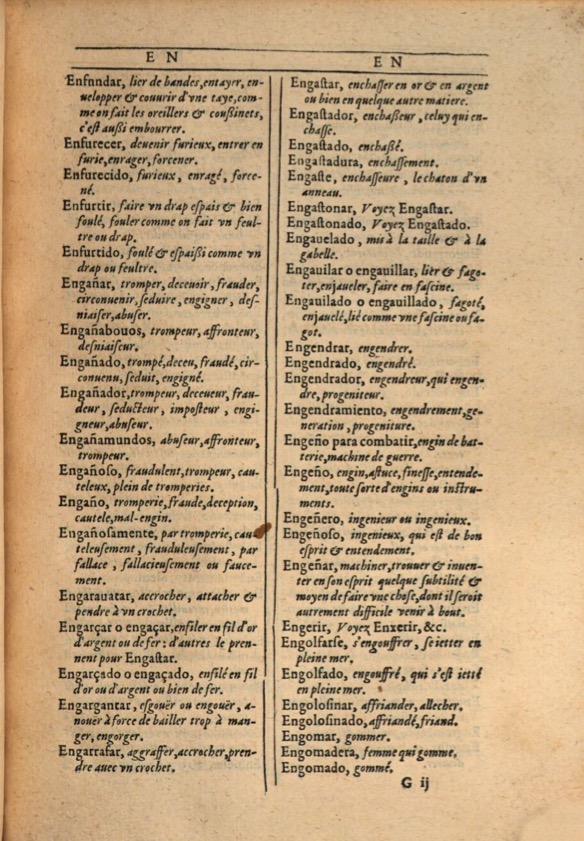 E N
Enfundar, lier de bandes, entayer, en-
uelopper & couurir d'vne taye, com-
me on fait les oreillers & coußinets,
c'est außi embourrer.
Enfurecer, deuenir furieux, entrer en
furie, enrager, forcener.
Enfurecido, furieux, enragé, force-
né.
Enfurtir, faire vn drap espais & bien
foulé, fouler comme on fait vn feul-
tre ou drap.
Enfurtido, foulé & espaißi comme vn
drap ou feultre.
Engañar, tromper, deceuoir, frauder,
circonuenir, seduire, engigner, des-
niaiser, abuser.
Engañabouos, trompeur, affronteur,
desniaiseur.
Engañado, trompé, deceu, fraudé, cir-
conuenu, seduit, engigné.
Engañador, trompeur, deceueur, frau-
deur, seducteur, imposteur, engi-
gneur, abuseur.
Engañamundos, abuseur, affronteur,
trompeur.
Engañoso, fraudulent, trompeur, cau-
teleux, plein de tromperies.
Engaño, tromperie, fraude, deception,
cautele, mal-engin.
Engañosamente, par tromperie, cau-
teleusement, frauduleusement, par
fallace, fallacieusement ou fauce-
ment.
Engarauatar, accrocher, attacher &
pendre à vn crochet.
Engarçar o engaçar, enfiler en fil d'or
d'argent ou de fer: d'autres le pren-
nent pour Engastar.
Engarçado o engaçado, enfilé en fil
d'or ou d'argent ou bien de fer.
Engargantar, esgouër ou engouër, a-
nouër à force de bailler trop à man-
ger, engorger.
Engarrafar, aggraffer, accrocher, pren-
dre auec vn crochet.
E N
Engastar, enchasser en or & en argent
ou bien en quelque autre matiere.
Engastador, enchaßeur, celuy qui en-
chasse.
Engastado, enchaßé.
Engastadura, enchassement.
Engaste, enchasseure, le chaton d'vn
anneau.
Engastonar, Voyez Engastar.
Engastonado, Voyez Engastado.
Engauelado, mis à la taille & à la
gabelle.
Engauilar o engauillar, lier & fago-
ter, enjaueler, faire en fascine.
Engauilado o engauillado, fagoté,
enjauelé, lié comme vne fascine ou fa-
got.
Engendrar, engendrer.
Engendrado, engendré.
Engendrador, engendreur, qui engen-
dre, progeniteur.
Engendramiento, engendrement, ge-
neration, progeniture.
Engeño para combatir, engin de bat-
terie, machine de guerre.
Engeño, engin, astuce, finesse, entende-
ment, toute sorte d'engins ou instru-
ments.
Engeñero, ingenieur ou ingenieux.
Engeñoso, ingenieux, qui est de bon
esprit & entendement.
Engeñar, machiner, trouuer & inuen-
ter en son esprit quelque subtilité &
moyen de faire vne chose, dont il seroit
autrement difficile venir à bout.
Engerir, Voyez Enxerir, &c.
Engolfarse, s'engouffrer, se ietter en
pleine mer.
Engolfado, engouffré, qui s'est ietté
en pleine mer.
Engolosinar, affriander, allecher.
Engolosinado, affriandé, friand.
Engomar, gommer.
Engomadera, femme qui gomme.
Engomado, gommé.
G ij